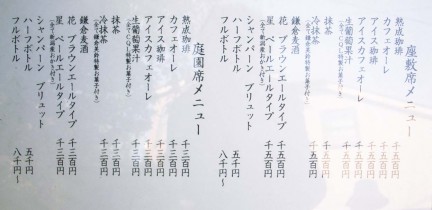 座敷席メニュー
熟成珈琲 千五百円
カフェオーレ 千五百円
アイス珈琲 千五百円
アイスカフェオーレ 千五百円
生葡萄果汁 千五百円
抹茶 千五百円
冷抹茶 千五百円
鎌倉麦酒
花 ブラウンエールタイプ 千五百円
星 ペールエールタイプ 千五百円
シャンパーン ブリュット
ハーフボトル 五千円
フルボトル 八千円〜
庭園席メニュー
熟成珈琲 千三百円
カフェオーレ 千三百円
アイス珈琲 千三百円
アイスカフェオーレ 千三百円
生葡萄果汁 千三百円
抹茶 千三百円
冷抹茶 千三百円
鎌倉麦酒
花 ブラウンエールタイプ 千三百円
星 ペールエールタイプ 千三百円
シャンパーン ブリュット
ハーフボトル 五千円
フルボトル 八千円〜